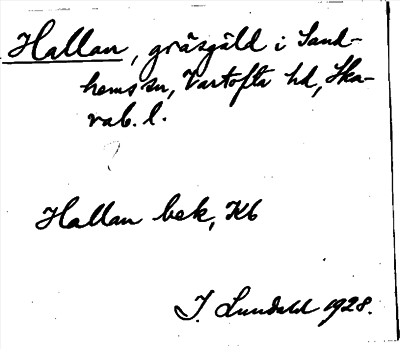 Hallan, gräsgäld i Sand-
hems sn, Vartofta hd, Ska-
rab. l.
Hallan bek, Kb
J. Lundahl 1928.